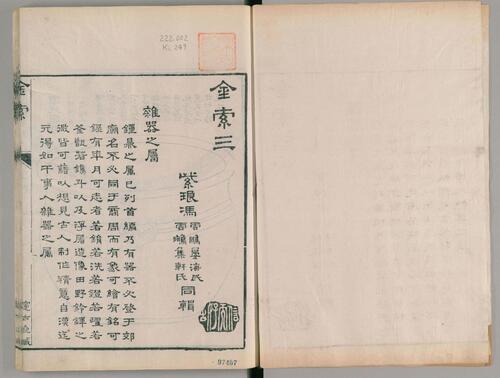 222.002
Ki 247
金索三
紫琅馮
雲鵬晏海氏
雲鵷集軒氏
同輯
雜器之屬
鐘鼎之屬已列首編乃有器不必登于郊
廟名不必同于商周而有象可繪有銘可
錄有年月可志者若洗若鐙若
釜甑若鐎斗以及浮屠造像田野鈴鐸之
微皆可藉以想見古人制作精意自漢迄
元得如干事入雜器之屬
金索
97467